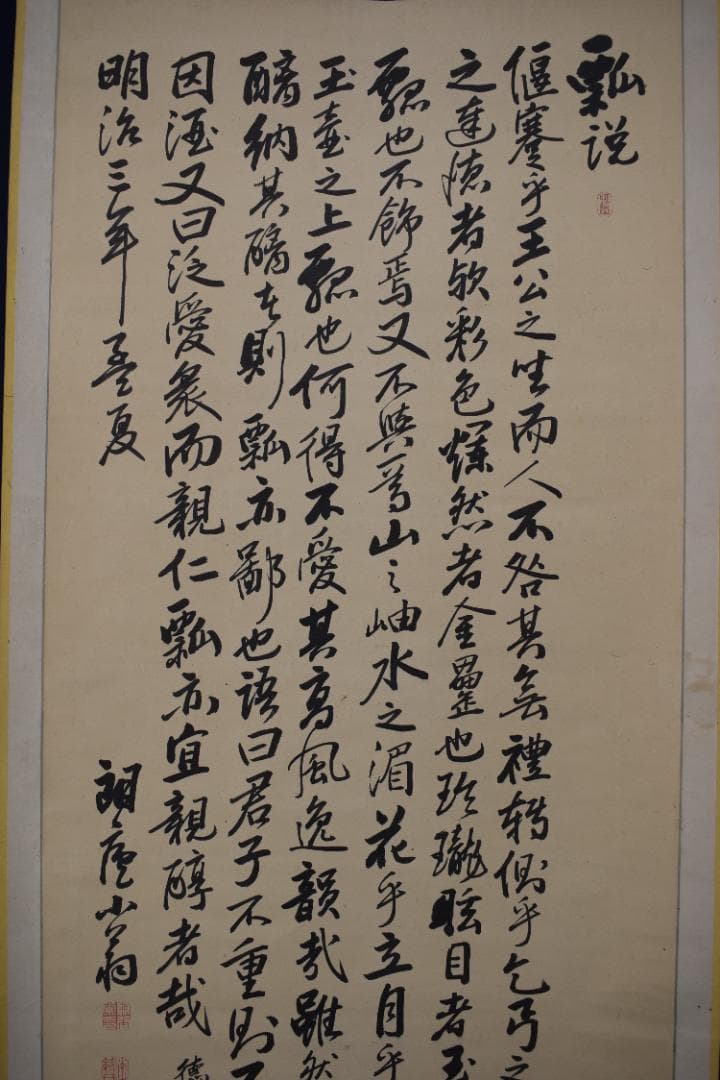 瓢説
偃蹇乎王公之坐而人不咎其無禮轉側乎乞丐之
之達德者欤彩色爛然者金罍也玲瓏眩目者玉
瓢也不飾焉又不與焉山之岫水之湄花乎立月乎
玉壺之上瓢也何得不愛其高風逸韻哉雖然
醨納其醨去則瓢亦鄙也語曰君子不重則不
因酒又曰泛愛衆而親仁瓢亦宜親醇者哉
德
明治三年孟夏
朗廬小翁